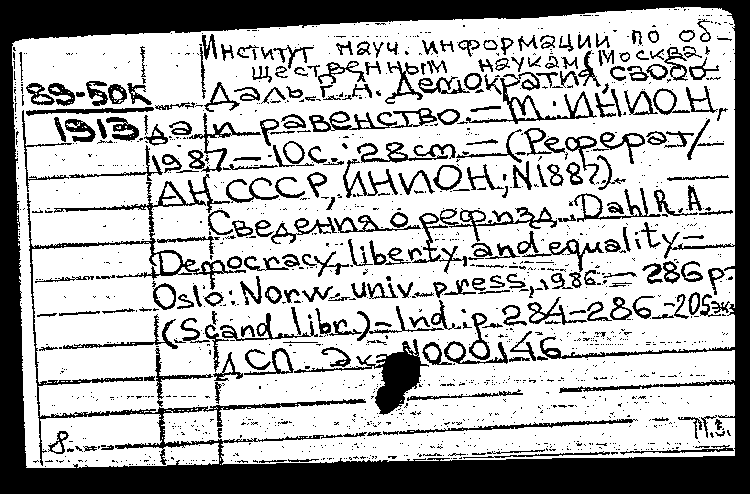 Институт науч. информации по об-
щественным наукам (Москва)
89-50к
Даль Р. А. Демократия, свобо-
1913
да и равенство. — М.: ИНИОН,
1987. — 10с.; 28см. — (Реферат/
АН СССР, ИНИОН; N1887).
Сведения о реф. изд.: Dahl R. A.
Democracy, liberty, and equality. —
Oslo: Norw. univ. press, 1986. — 286 p. —
(Scand. libr.) — Ind.: p. 284-286. - 205экз.
ДСП. Экз. N000146
8.